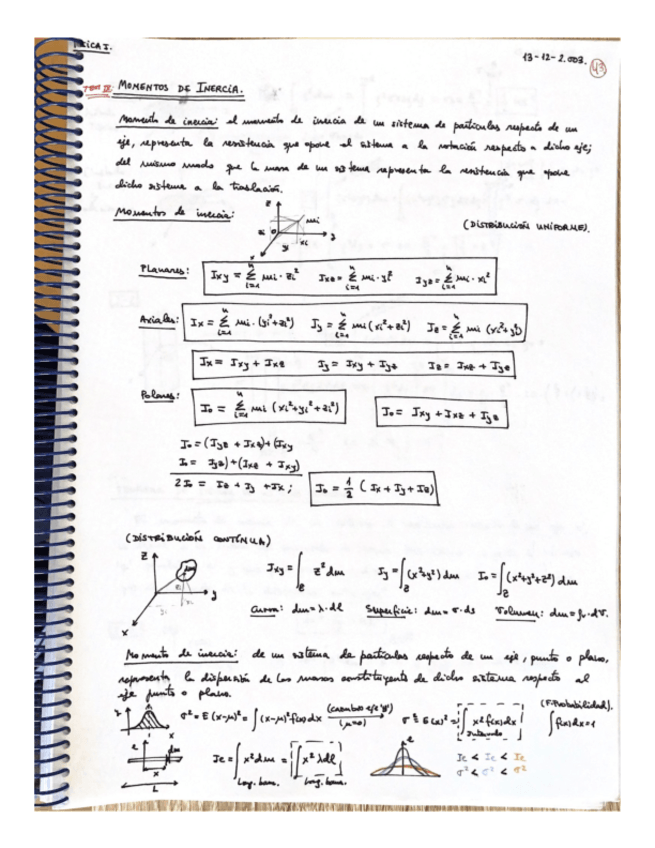 FÍSICA I.
13-12-2.003. 43
TEMA III: MOMENTOS DE INERCIA.
Momento de inercia: el momento de inercia de un sistema de partículas respecto de un
eje, representa la resistencia que opone el sistema a la rotación respecto a dicho eje;
del mismo modo que la masa de un sistema representa la resistencia que opone
dicho sistema a la traslación.
Momentos de inercia:
z mi zi 0 y yi xi x
(DISTRIBUCIÓN UNIFORME).
Planares: Ixy = Σ mi·zi² Ixz = Σ mi·yi² Iyz = Σ mi·xi²
Axiales: Ix = Σ mi·(yi²+zi²) Iy = Σ mi(xi²+zi²) Iz = Σ mi (xi²+yi²)
Ix = Ixy + Ixz Iy = Ixy + Iyz Iz = Ixz + Iyz
Polares: Io = Σ mi (xi²+yi²+zi²) Io = Ixy + Ixz + Iyz
Io = (Iyz + Ixz) + (Ixy
Io = Iyz) + (Ixz + Ixy)
2Io = Iz + Iy + Ix ; Io = 1/2 ( Ix + Iy + Iz)
(DISTRIBUCIÓN CONTÍNUA)
Z dm y x
Ixy = ∫ z² dm Iy = ∫ (x²+y²) dm Io = ∫ (x²+y²+z²) dm
Curva: dm = λ·dl Superficie: dm = σ·ds Volumen: dm = ρ·dV.
Momento de inercia: de un sistema de partículas respecto de un eje, punto o plano,
representa la dispersión de las masas constituyente de dicho sistema respecto al
eje punto o plano.
σ² = E (x-μ)² = ∫ (x-μ)² f(x) dx (CAMBIO eje "y") (μ=0) σ² = E(x)² = ∫ x² f(x) dx (F. Probabilidad). ∫ f(x) dx = 1
e dm x L
Ie = ∫ x² dm = ∫ x² λ dl e Ie < Ie < Ie
Long. barra. Long. barra. σ² < σ² < σ²